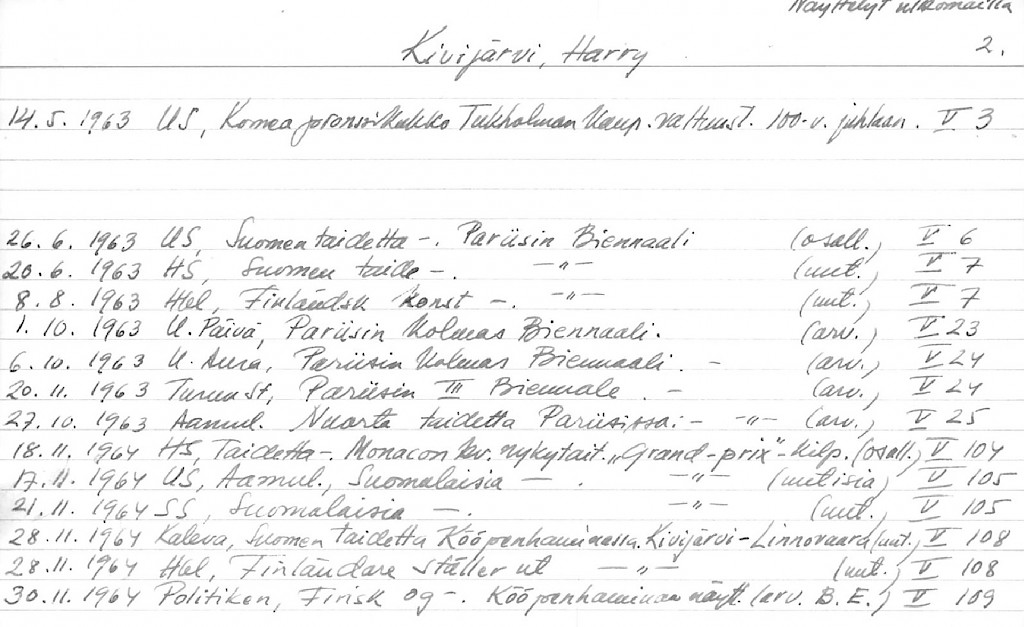 Näyttelyt ulkomailla
2.
Kivijärvi, Harry
14.5. 1963 US, Komea pronssikukko Tukholman kaup. valtuust. 100-v. juhlaan. V 3
26.6. 1963 US, Suomen taidetta -. Pariisin Biennaali (osall.) V 6
20.6. 1963 HS, Suomen taide -. -"- (uut.) V 7
8.8. 1963 Hbl, Finländsk konst -. -"- (uut.) V 7
1.10. 1963 U. Päivä, Pariisin kolmas Biennaali. (arv.) V 23
6.10. 1963 U. Aura, Pariisin kolmas Biennaali. - (arv.) V 24
20.11. 1963 Turun St, Pariisin III Biennale. - (arv.) V 24
27.10. 1963 Aamul. Nuorta taidetta Pariisissa: - -"- (arv.) V 25
18.11. 1964 HS, Taidetta -. Monacon kv. nykytait. „Grand-prix"-kilp. (osall.) V 104
17.11. 1964 US, Aamul., Suomalaisia -. -"- (uutisia) V 105
21.11. 1964 SS, Suomalaisia -. -"- (uut.) V 105
28.11. 1964 Kaleva, Suomen taidetta Kööpenhaminassa. Kivijärvi-Linnovaara (uut.) V 108
28.11. 1964 Hbl, Finländare ställer ut -"- (uut.) V 108
30.11. 1964 Politiken, Finsk og -. Kööpenhaminan näyt. (arv. B.E.) V 109